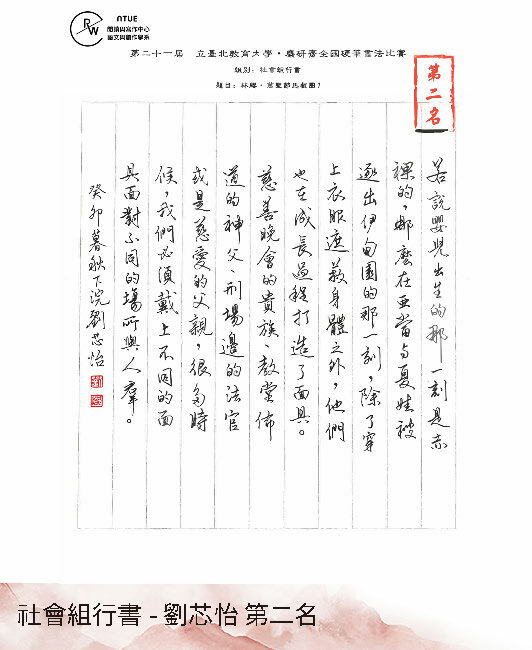 NTUE
RW
閱讀與寫作中心
語文與創作學系
第二十一屆 立臺北教育大學・麋研齋全國硬筆書法比賽
組別：社會組行書
第二名
若說嬰兒出生的那一刻是赤
裸的，那麼在亞當与夏娃被
逐出伊甸園的那一刻，除了穿
上衣服遮蔽身體之外，他們
也在成長過程打造了面具。
慈善晚會的貴族、教堂佈
道的神父、刑場邊的法官
或是慈愛的父親，很多時
候，我們必須戴上不同的面
具面對不同的場所與人羣。
癸卯暮秋下浣劉芯怡
社會組行書 - 劉芯怡 第二名